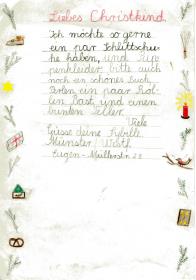 Liebes Christkind.
Ich möchte so gerne
ein par Schlittschu-
he haben, und Pup-
penkleider bitte auch
noch ein schönes Buch,
Perlen ein paar Rol-
len Bast und einen
bunten Teller.
Viele
Grüsse deine Sybille
Münster Westf.
Eugen-Müllerstr